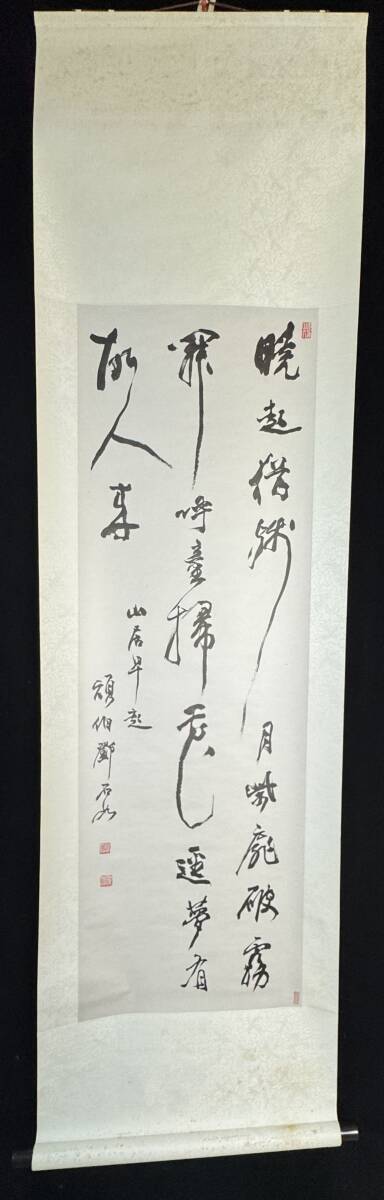 曉起猶殘月柴扉破霧
開呼童掃花逕夢有
故人来
山居早起
頑伯鄧石如